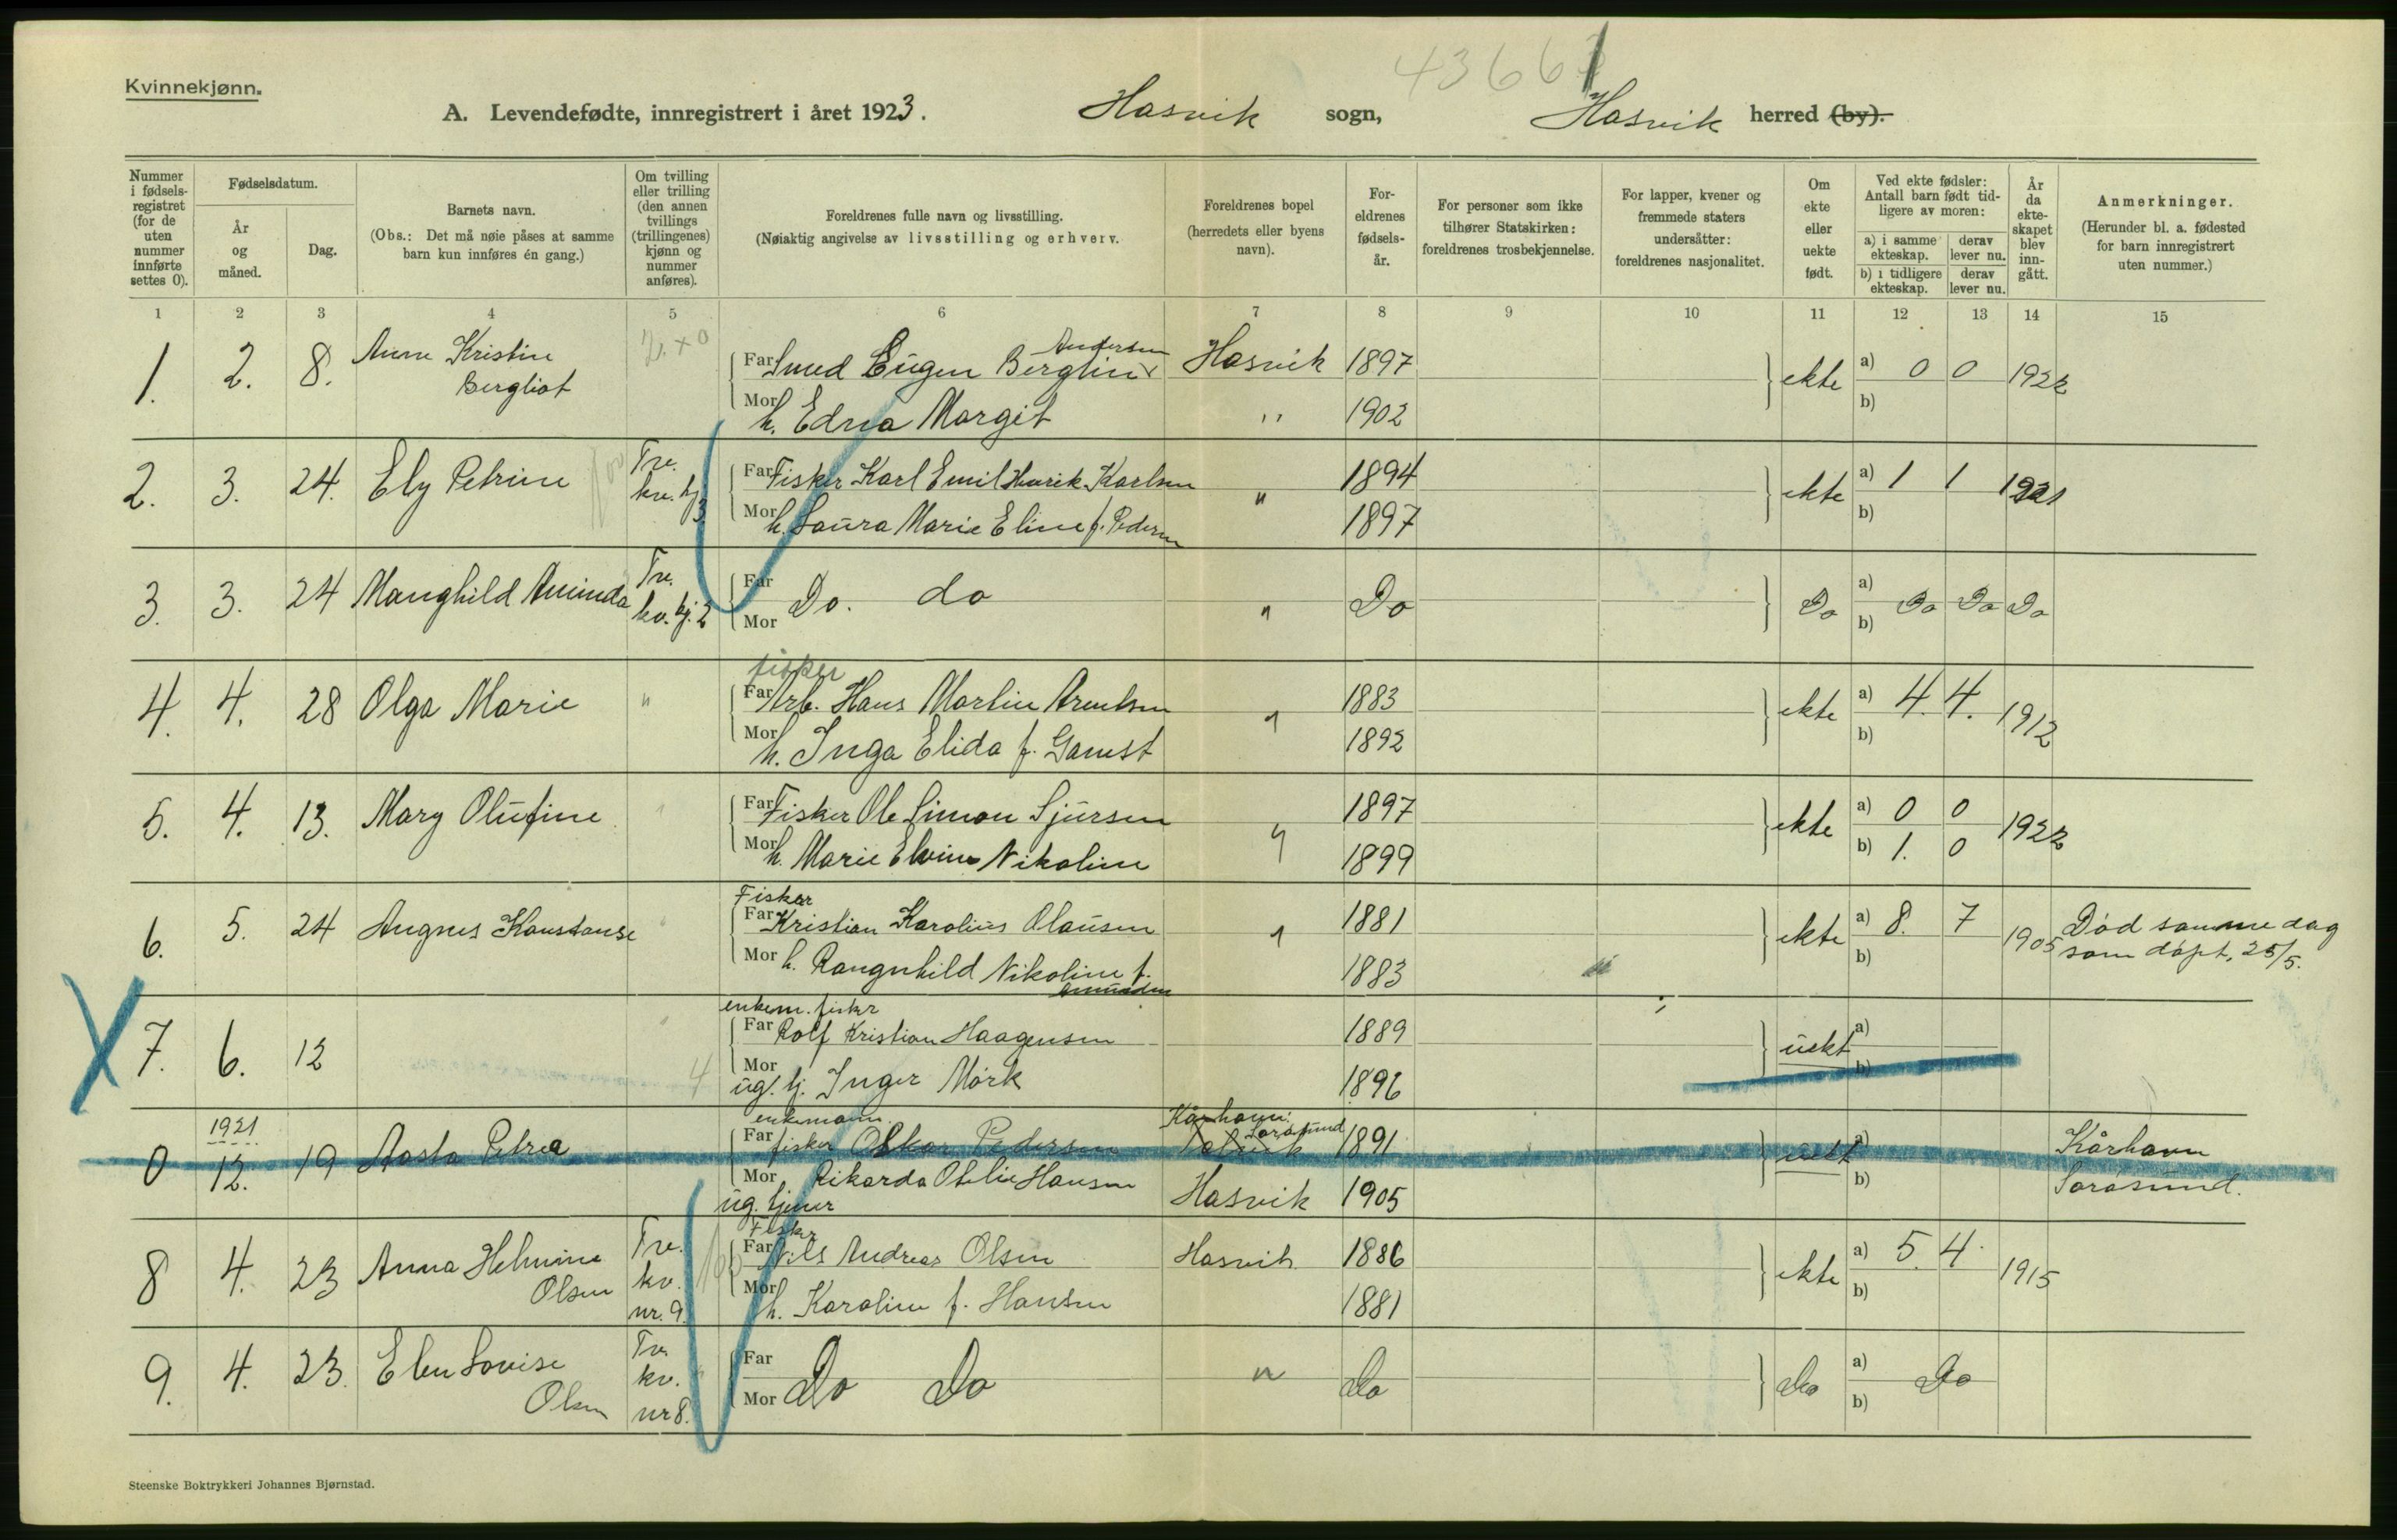 4366
Kvinnekjønn.
A. Levendefødte, innregistrert i året 1923. Hasvik sogn, Hasvik herred (by).
Nummer i fødsels-registret (for de uten nummer innførte settes 0).
Fødselsdatum.
År og måned.
Dag.
Barnets navn.
(Obs.: Det må nøie påses at samme barn kun innføres én gang.)
Om tvilling eller trilling (den annen tvillings (trillingenes) kjønn og nummer anføres).
Foreldrenes fulle navn og livsstilling.
(Nøiaktig angivelse av livsstilling og erhverv.
Foreldrenes bopel (herredets eller byens navn).
For-eldrenes fødsels-år.
For personer som ikke tilhører Statskirken: foreldrenes trosbekjennelse.
For lapper, kvener og fremmede staters undersåtter: foreldrenes nasjonalitet.
Om ekte eller uekte født.
Ved ekte fødsler: Antall barn født tid-ligere av moren:
a) i samme ekteskap.
derav lever nu.
b) i tidligere ekteskap.
derav lever nu.
År da ekte-skapet blev inn-gått.
Anmerkninger.
(Herunder bl. a. fødested for barn innregistrert uten nummer.)
1 2 3 4 5 6 7 8 9 10 11 12 13 14 15
1. 2. 8. Anne Kristin Bergliot
Far Smed Eugen Berglin Andersen Hasvik 1897 ekte a) 0 0 1922
Mor h. Edna Margit " 1902 b)
2. 3. 24. Ely Petrine Tv. kv. kj 3
Far Fisker Karl Emil Henrik Karlsen " 1894 ekte a) 1 1 1921
Mor h. Laura Marie Eline f. Pedersen 1897 b)
3. 3. 24 Manghild Aminda Tv. kv. kj. 2
Far Mor Do. do " Do Do a) b) Do Do Do
4. 4. 28 Olga Marie "
fisker
Far Arb. Hans Martin Arentsen " 1883 ekte a) 4. 4. 1912
Mor h. Inga Elida f. Gamst 1892 b)
5. 4. 13. Mary Olufine
Far Fisker Ole Simon Sjursen " 1897 ekte a) 0 0 1922
Mor h. Marie Elvine Nikoline 1899 b) 1. 0
6. 5. 24 Angnes Konstanse
Fisker
Far Kristian Karolius Olausen " 1881 ekte a) 8. 7 1905 Død samme dag
Mor h. Rangnhild Nikoline f. 1883 b) som døpt, 25/5.
7. 6. 12
enkem. fisker
Far Rolf Kristian Haagensen 1889 uekt a)
4 Mor ug. tj. Inger Mørk 1896 b)
1921
0 12. 19 Aasta Petrea
enkemann
Kårhavn Sørøsund
Far fisker Oskar Pedersen 1891 uekt a) Kårhavn
Mor Rikarda Otelie Hansen Hasvik 1905 b) Sørøsund.
ug. tjener
8 4. 23 Anna Helmine Olsen Tv. kv. nr. 9.
Fisker
Far Nils Andreas Olsen Hasvik 1886 ekte a) 5. 4. 1915
Mor h. Karoline f. Hansen 1881 b)
9. 4. 23. Elen Lovise Olsen Tv. kv. nr 8.
Far Mor Do Do " Do Do a) b) Do
Steenske Boktrykkeri Johannes Bjørnstad.